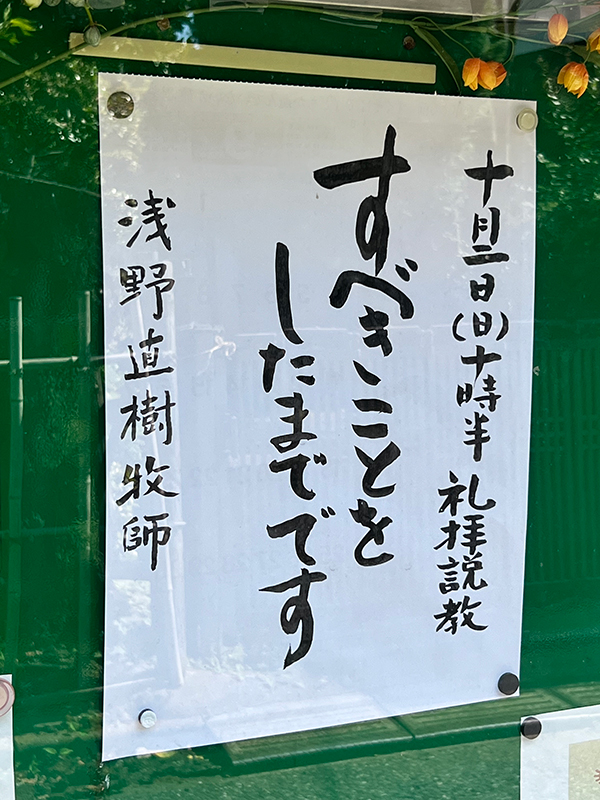 十月二日(日)十時半 礼拝説教
すべきことを
したまでです
浅野直樹牧師